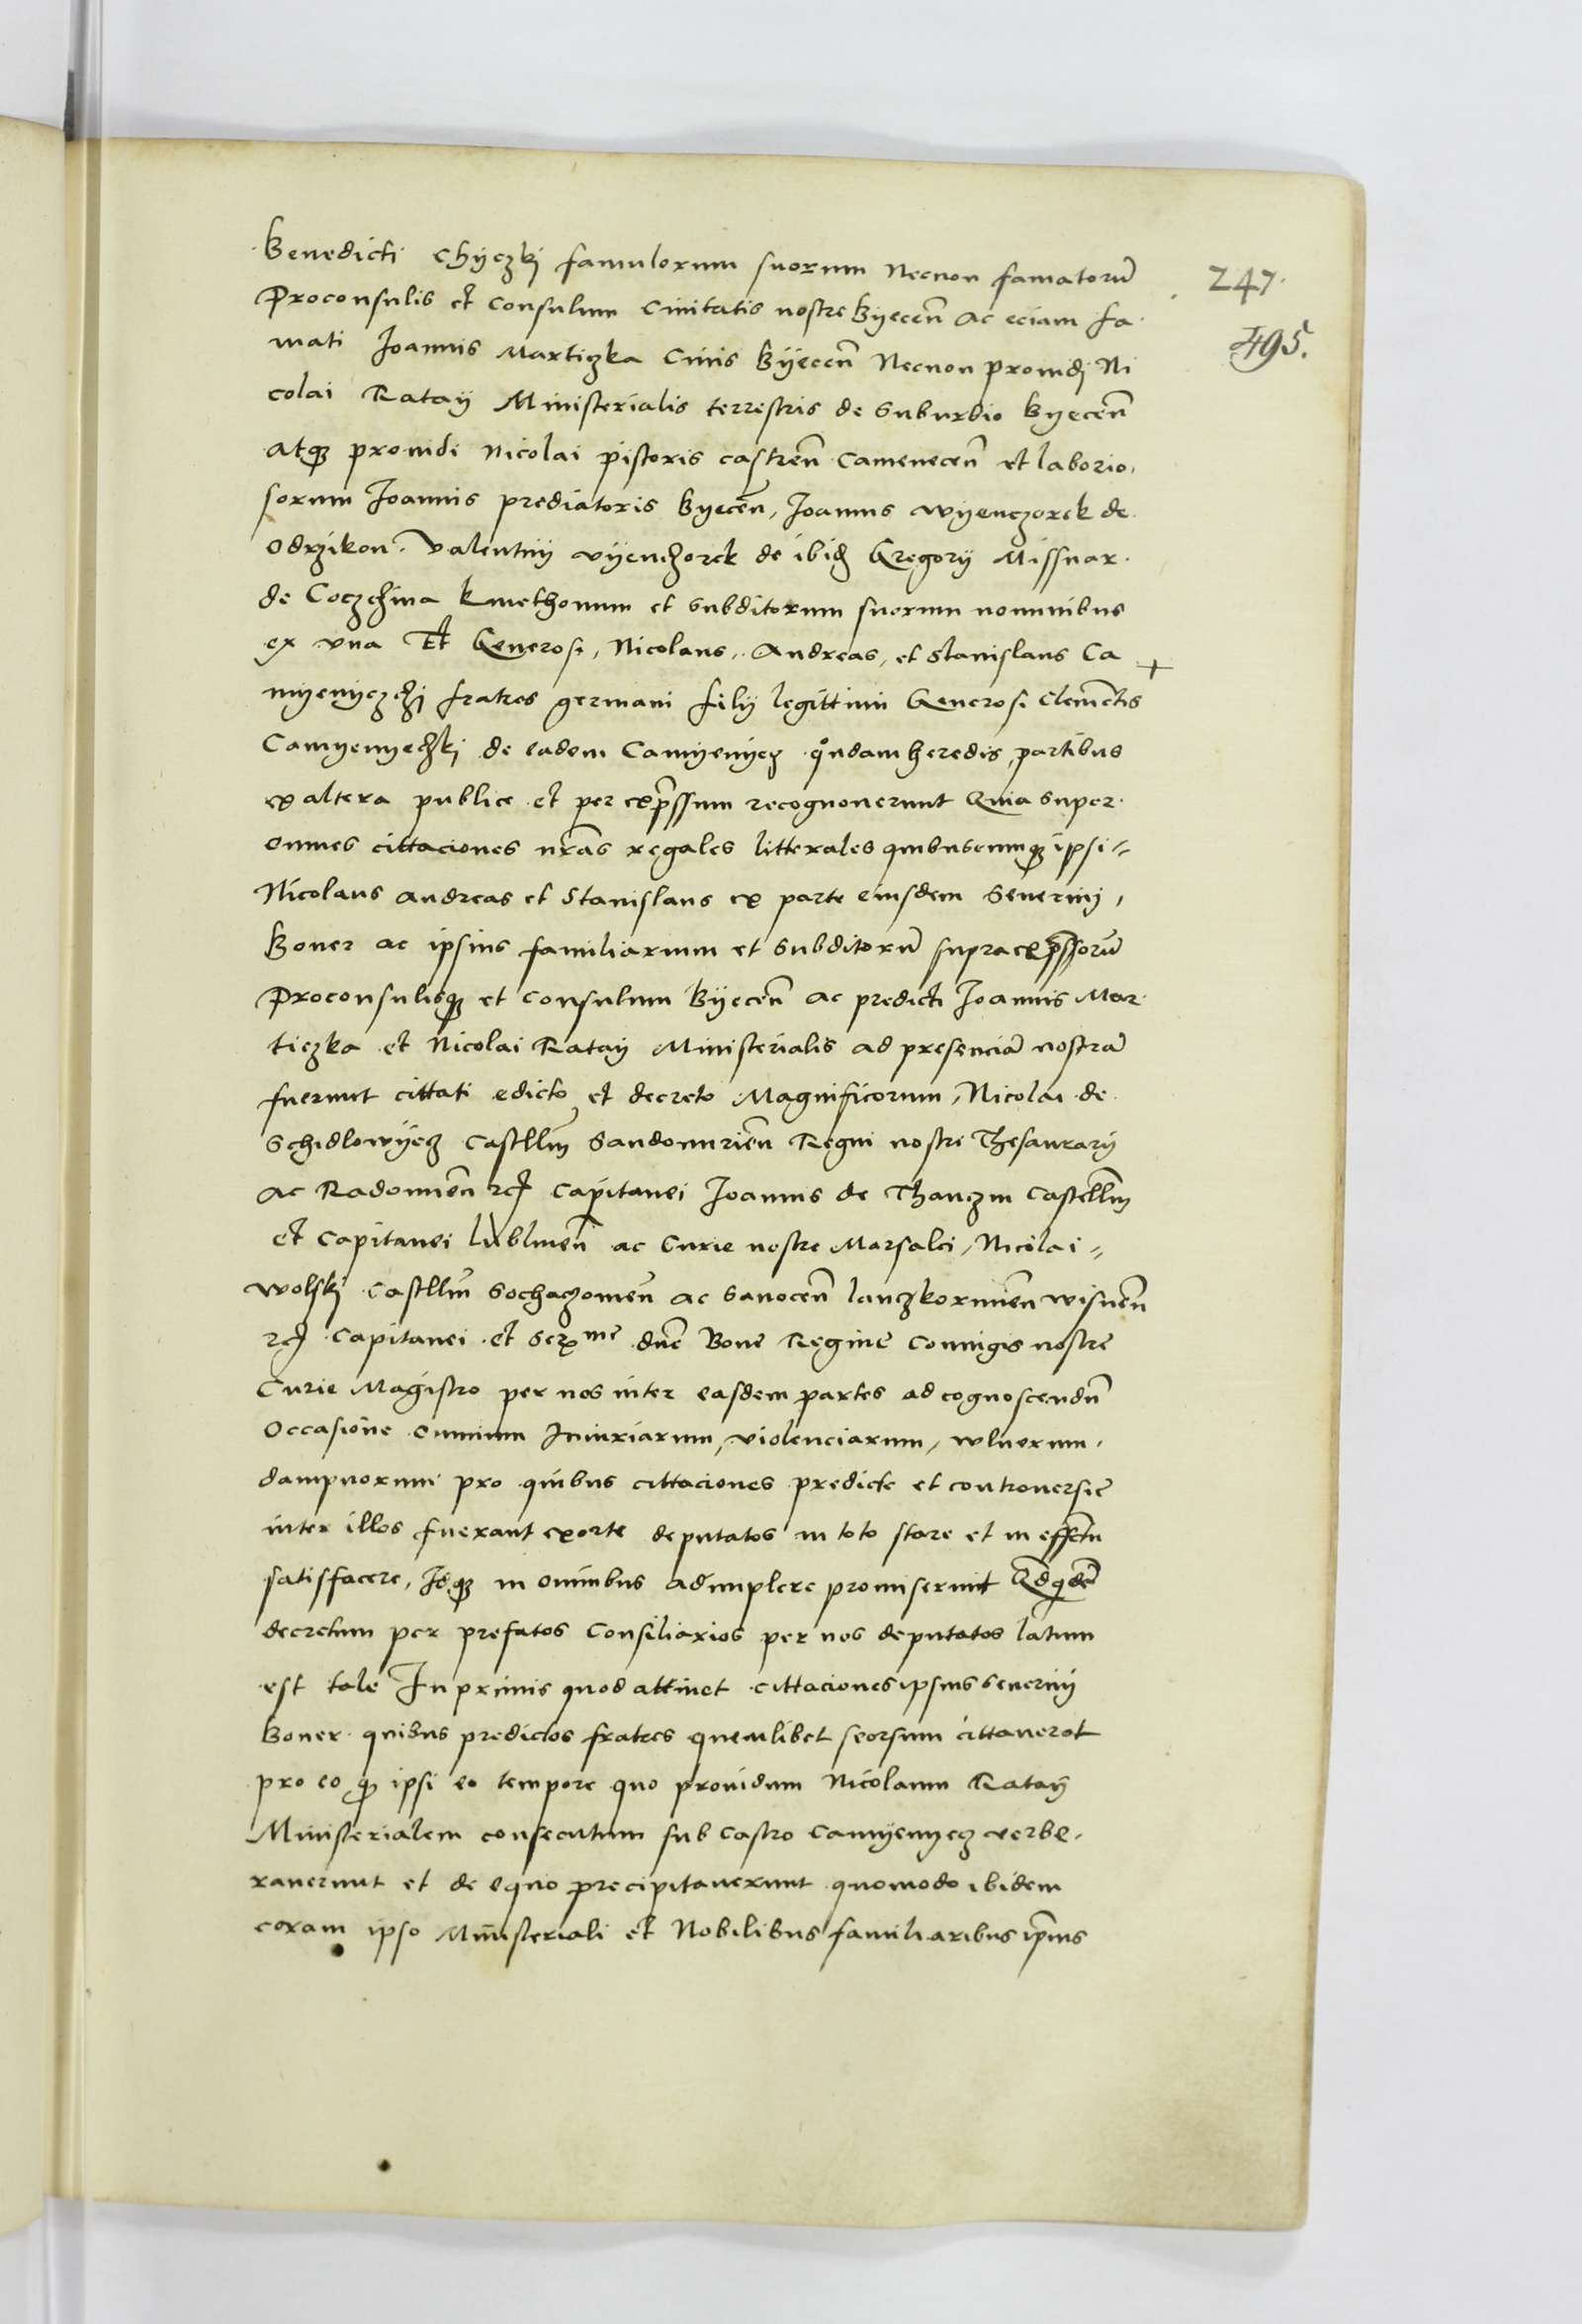 Benedicti Chyczkj famulorum suorum Necnon famatorũ
247.
Proconsulis et Consulum Ciuitatis nostre Byeceñ ac eciam fa
495.
mati Joannis Marticzka Ciuis Byeceñ Necnon prouidj Ni
colai Ratay Ministerialis terrestris de suburbio Byeceñ
atq3 prouidi Nicolai pistoris castreñ Cameneceñ et laborio,
sorum Joannis prediatoris Byeceñ, Joannis wyenczorek de
Odrzikon. Valentinj vyenczorek de ibid Gregorij Missnar
de Coczchina kmethonum et subditorum suorum nominibus
ex vna Et Generosi, Nicolaus, Andreas, et Stanislaus Ca +
myenyeczkj fratres germani filij legittimi Generosi Clemẽtis
Camyenyeczkj de eadem Camyenyecz qondam heredis, partibus
ex altera publice et per exp̃ssum recognouerunt Quia super
omnes cittaciones nr̃as regales litterales quibuscumq3 ipsi
Nicolaus Andreas et Stanislaus ex parte eiusdem Seuerinj,
Boner ac ipsius familiarium et subditorũ supraexp̃ssorũ
Proconsulisq3 et Consulum Byeceñ ac predicti Joannis Mar
ticzka et Nicolai Ratay Ministerialis ad presenciã nostrã
fuerunt cittati edicto et decreto Magnificorum, Nicolai de
Schidlowyecz Castellñ Sandomirieñ Regni nostri Thesaurarij
ac Radomieñ rc̃ Capitanei Joannis de Thanczin Castellñ
et Capitanei Lublineñ ac Curie nostre Marsalci, Nicolai
wolskj Castellñ Sochaczouieñ ac Sanoceñ lanczkorunieñ wisneñ
rc̃ Capitanei et Serme dnẽ Bone Regine Coniugis nostre
Curie Magistro per nos inter easdem partes ad cognoscendũ
Occasione omnium Iniuriarum, violenciarum, wlnerum,
dampnorum pro quibus cittaciones predicte et controuersie
inter illos fuerant exorte deputatos in toto stare et in effectu
satisfacere, Idq3 in omnibus adimplere promiserunt Qd quidẽ
decretum per prefatos Consiliarios per nos deputatos latum
est tale Inprimis quod attinet cittaciones ipsius Seuerinj
Boner quibus predictos fratres quemlibet seorsum cittauerat
pro eo q3 ipsi eo tempore quo prouidum Nicolaum Ratay
Ministerialem consecutum sub Castro Camyenyecz verbe,
rauerunt et de equo precipitauerunt quomodo ibidem
coram ipso Ministeriali et Nobilibus familiaribus ip̃ius